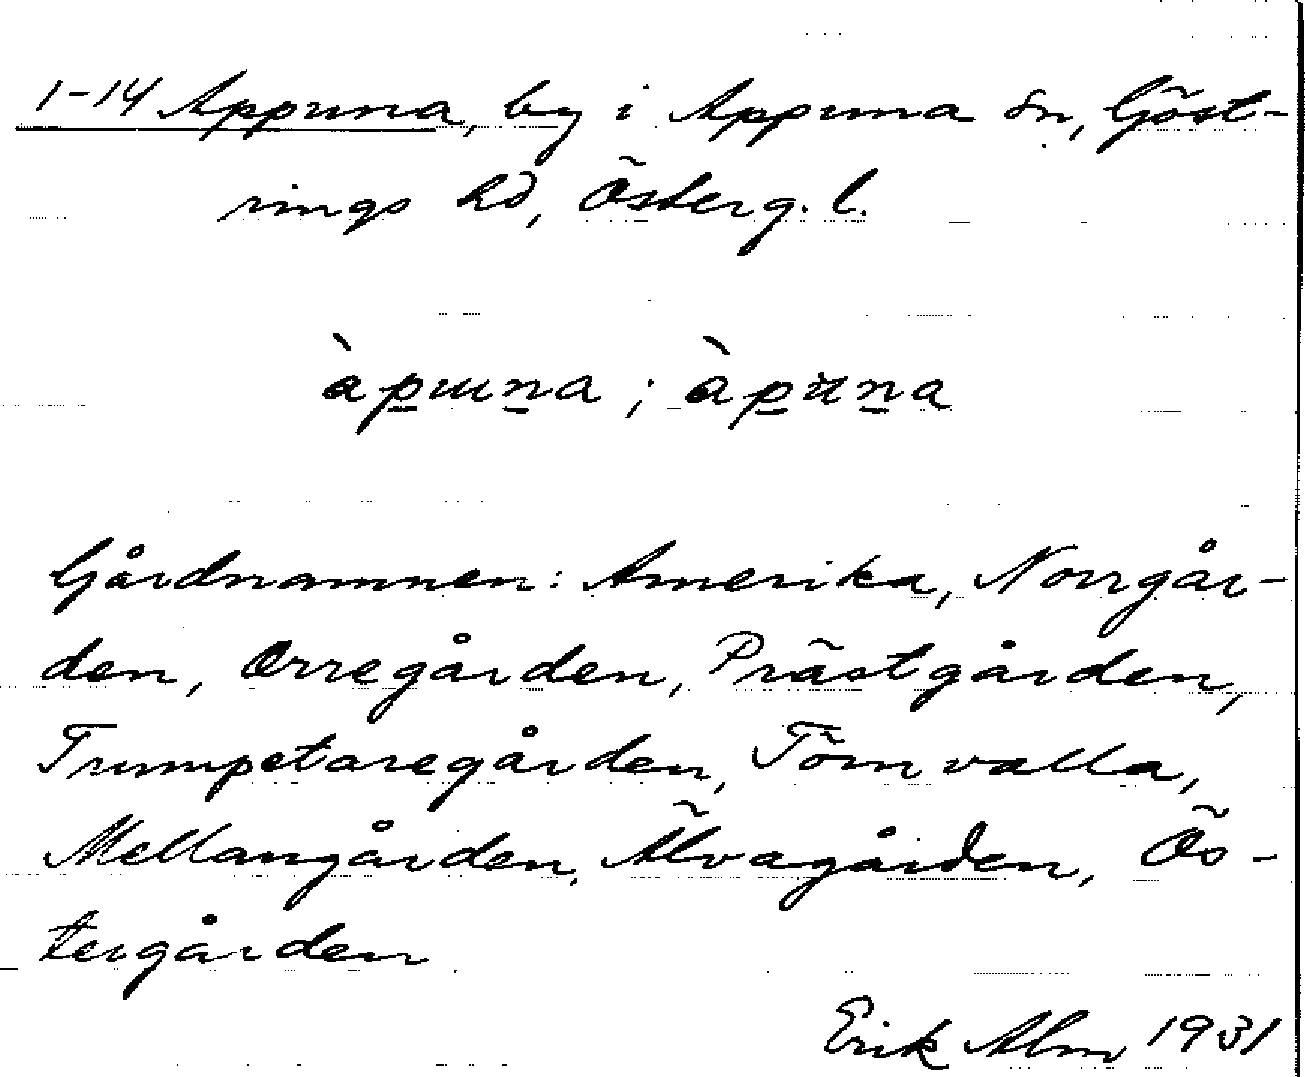 1-14 Appuna, by i Appuna sn, Göst-
rings hd, Österg. l.
àpuna; àpu̇na
Gårdnamnen: Amerika, Norrgår-
den, Orregården, Prästgården,
Trumpetaregården, Tömvalla,
Mellangården, Älvagården, Ös-
tergården
Erik Alm 1931